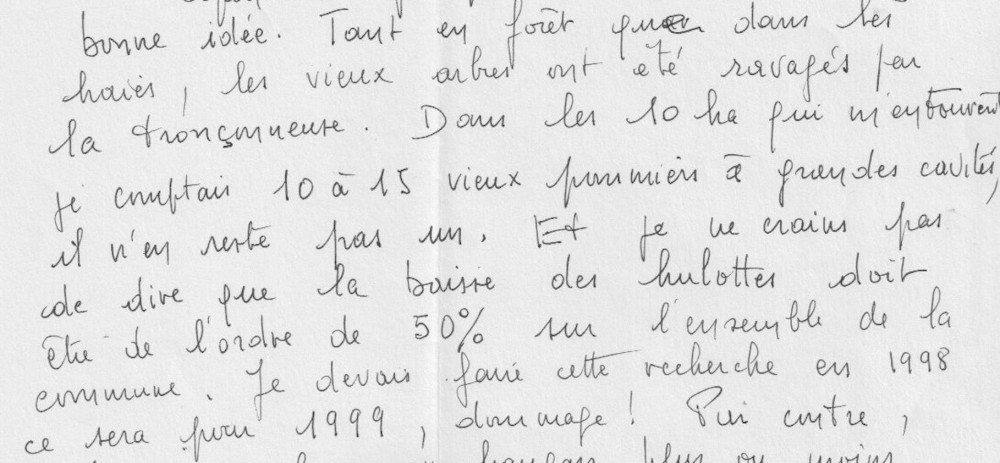 bonne idée. Tant en forêt que dans les
haies, les vieux arbres ont été ravagés par
la tronçonneuse. Dans les 10 ha qui m'entourent
je comptais 10 à 15 vieux pommiers à grandes cavités,
il n'en reste pas un. Et je ne crains pas
de dire que la baisse des hulottes doit
être de l'ordre de 50% sur l'ensemble de la
commune. Je devais faire cette recherche en 1998
ce sera pour 1999, dommage ! Par contre,
plus ou moins